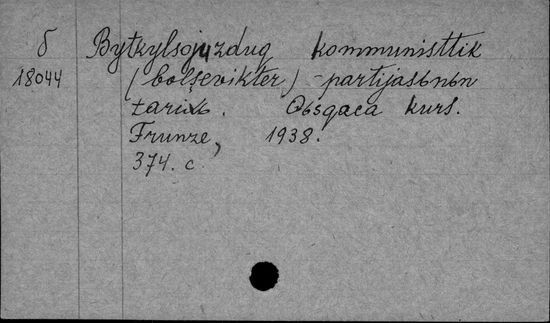 б Bytkylsojuzduq kommunisttik
18044 (bolşevikter) - partijasьnьn
tariхь. Qьsqaca kurs.
Frunze, 1938.
374. c.